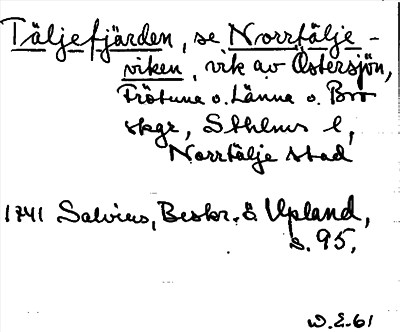 Täljefjärden, se Norrtälje-
viken, vik av Östersjön,
Frötuna o. Länna o. Bro
skgr, Sthlms l,
Norrtälje stad
1741 Salvius, Beskr. ö Upland,
s. 95.
W.E-61